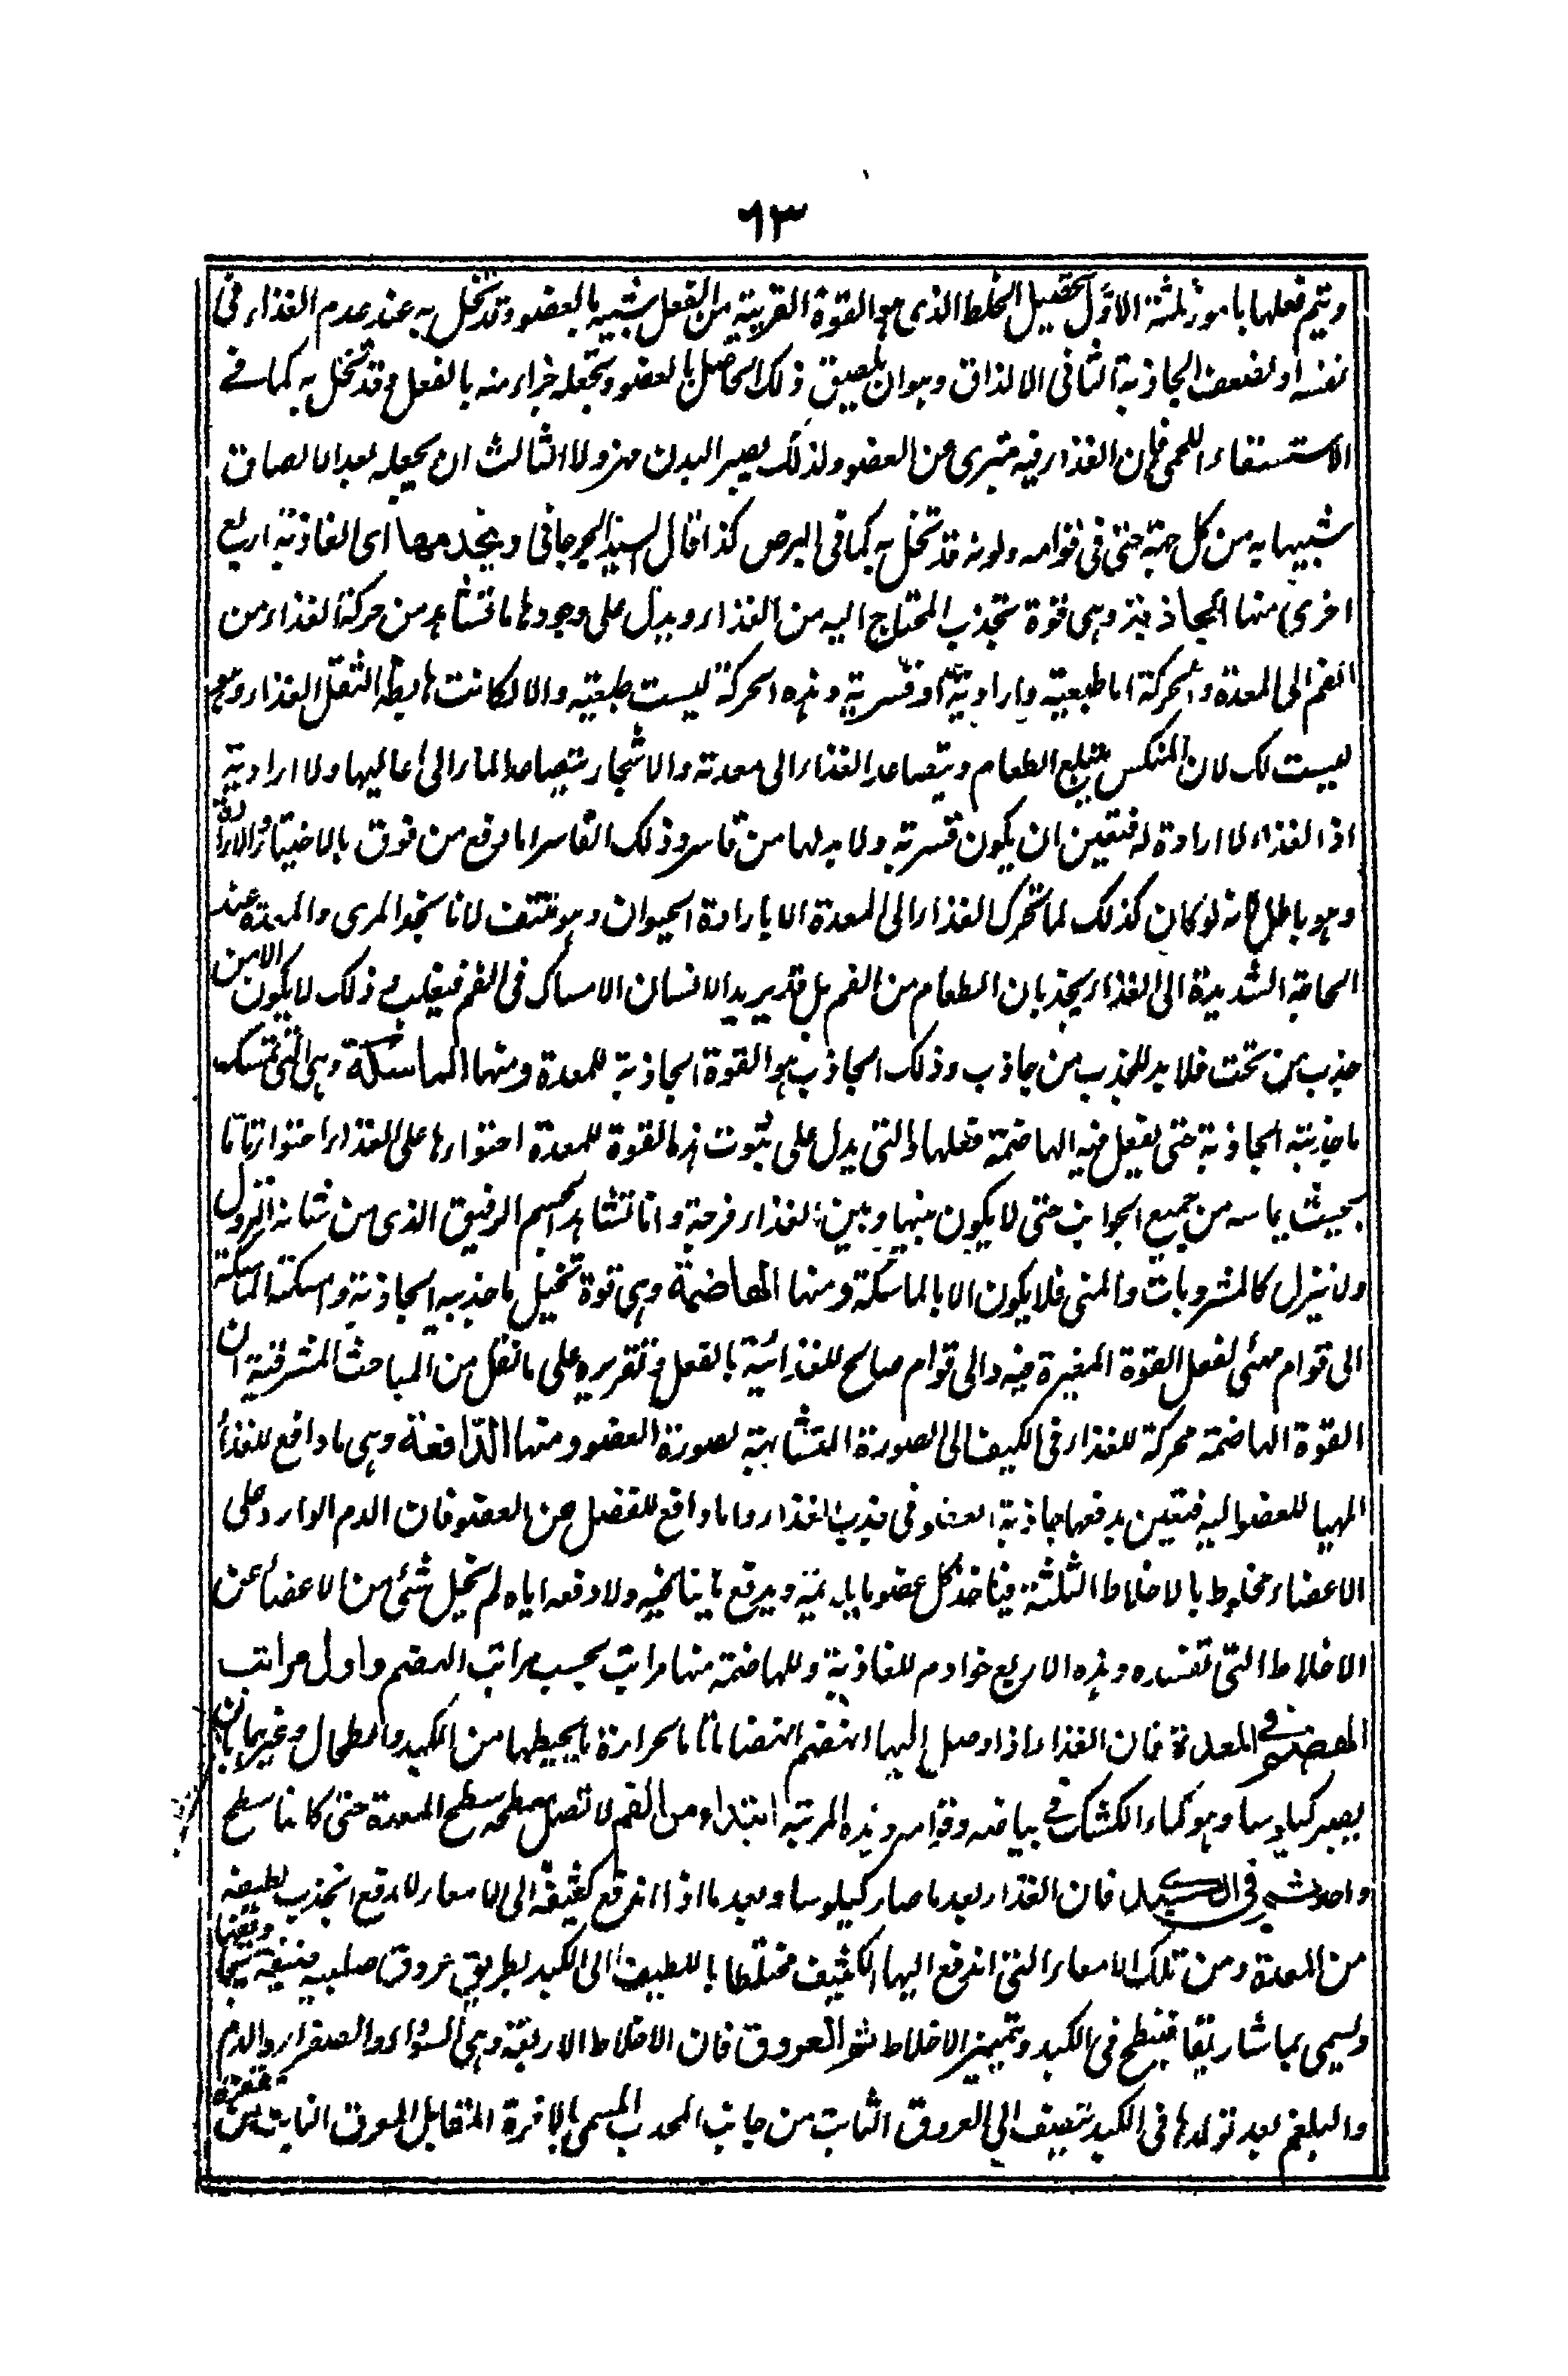 ٩٣
ويتم فعلها بامور ثلثة الاول تحصيل الخلط الذى هو بالقوة القريبة من الفعل شبيه بالعضو وقد تخل به عند عدم الغذاء فى
نفسه او لضعف الجاذبة الثانى الالذاق وهو ان يلصق ذلك الحاصل بالعضو وتجعله جزاء منه بالفعل وقد تخل به كما فى
الاستسقاء اللحمى فان الغذاء فيه متبرى عن العضو ولذلك يصير البدن مهزولا الثالث ان يجعله بعد الالصاق
شبيها به من كل جهة حتى فى قوامه ولونه قد تخل به كما فى البرص كذا قال السيد الجرجانى ويخدمها اى الغاذية اربع
اخرى منها الجاذبة وهى قوة تجذب المحتاج اليه من الغذاء ويدل على وجودها ما تشاهد من حركة الغذاء من
الفم الى المعدة والحركة اما طبعية او ارادية او قسرية وهذه الحركة ليست طبعية والا لكانت هابطة لثقل الغذاء وهى
ليست كك لان المنكس يبتلع الطعام ويتصاعد الغذاء الى معدته والاشجار يتصاعد الماء الى اعاليها ولا ارادية
اذ الغذاء لا ارادة له فتعين ان يكون قسرية ولا بد لها من قاسر وذلك القاسر اما دفع من فوق بالاختيار والارادة
وهو باطل لانه لو كان كذلك لما تحرك الغذاء الى المعدة الا بارادة الحيوان وهو منتف لانا نجد المرى والمعدة عند
الحاجة الشديدة الى الغذاء يجذبان الطعام من الفم بل قد يريد الانسان الامساك فى الفم فيغلب وذلك لا يكون الا من
جذب من تحت فلا بد للجذب من جاذب وذلك الجاذب هو القوة الجاذبة للمعدة ومنها الماسكة وهى التى تمسك
ما جذبته الجاذبة حتى يفعل فيه الهاضمة فعلها والتى يدل على ثبوت هذه القوة للمعدة احتوائها على الغذاء احتواء تاما
بحيث يماسه من جميع الجوانب حتى لا يكون بينها وبين الغذاء فرجة وانا نشاهد الجسم الرقيق الذى من شانه النزول
ولا ينزل كالمشروبات والمنى فلا يكون الا بالماسكة ومنها الهاضمة وهى قوة تحيل ما جذبه الجاذبة وامسكته الماسكة
الى قوام مهيئ لفعل القوة المغيرة فيه والى قوام صالح للغذائية بالفعل وتقريره على ما نقل من المباحث المشرقية ان
القوة الهاضمة محركة للغذاء فى الكيف الى الصورة المتشابهة لصورة العضو ومنها الدافعة وهى اما دافع للغذاء
المهيا للعضو اليه فتعين بدفعها جاذبة العضو فى جذب الغذاء واما دافع للفضل عن العضو فان الدم الوارد على
الاعضاء مخلوط بالاخلاط الثلثة فياخذ كل عضو ما يلايمه ويدفع ما ينافيه ولا دفعه اياه لم تخل شئ من الاعضاء عن
الاخلاط التى تفسده وهذه الاربع خوادم للغاذية وللهاضمة منها مراتب بحسب مراتب الهضم واول مراتب
الهضم فى المعدة فان الغذاء اذا وصل اليها انهضم انهضاما تاما بحرارة ما يحيطها من الكبد والطحال وغيرهما بان
يصير كيلوسا وهو كماء الكشك فى بياضه وقوامه وهذه المرتبة ابتداء من الفم لاتصال سطحه سطح المعدة حتى كانا سطح
واحد ثم فى الكبد فان الغذاء بعد ما صار كيلوسا وبعد ما اذا اندفع كثيفه الى الامعاء للدفع انجذب لطيفه
من المعدة ومن تلك الامعاء التى اندفع اليها الكثيف مختلطا باللطيف الى الكبد بطريق عروق صلبية ضيقة
ويسمى بماساريقا فينطبخ فى الكبد وتتميز الاخلاط العروق فان الاخلاط الاربعة وهى السوداء والصفراء والدم
والبلغم بعد تولدها فى الكبد تنصب الى العروق الثابت من جانب المحدب المسمى المقابل للعرق النابت من مقعره